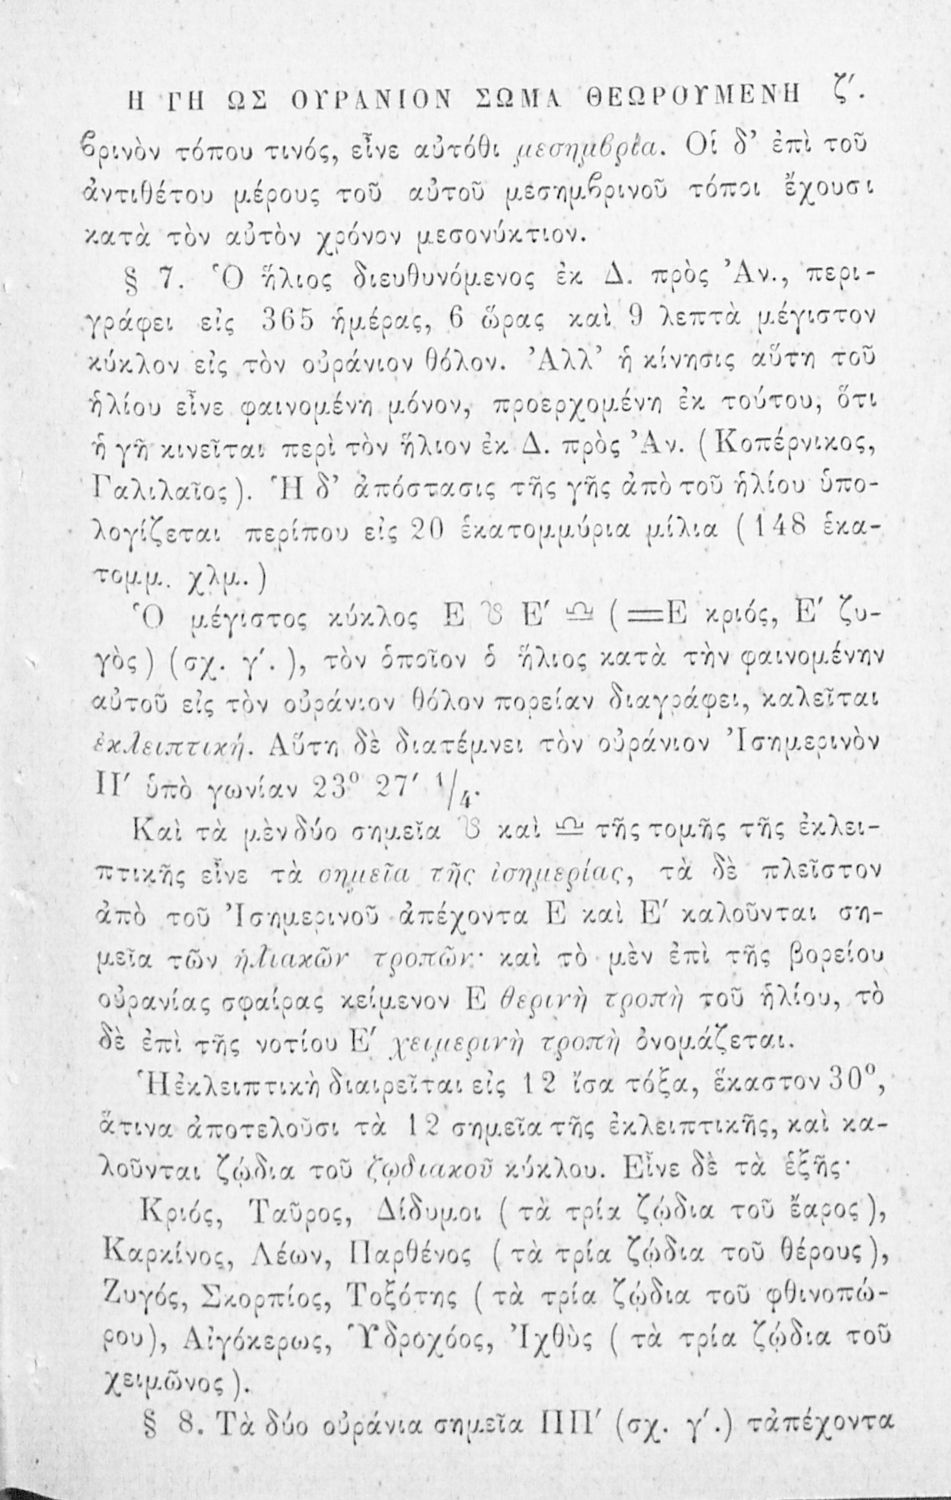 Η ΓΗ ΩΣ ΟΥΡΑΝΙΟΝ ΣΩΜΑ ΘΕΩΡΟΥΜΕΝΗ ζ'.
ϐρινὸν τόπου τινός, εἶνε αὐτόθι μεσημϐρία. Οἱ δ' ἐπὶ τοῦ
ἀντιθέτου μέρους τοῦ αὐτοῦ μεσημϐρινοῦ τόποι ἔχουσι
κατὰ τὸν αὐτὸν χρόνον μεσονύκτιον.
§ 7. Ὁ ἥλιος διευθυνόμενος ἐκ Δ. πρὸς Ἀν., περι-
γράφει εἰς 365 ἡμέρας, 6 ὥρας καὶ 9 λεπτὰ μέγιστον
κύκλον εἰς τὸν οὐράνιον θόλον. Ἀλλ' ἡ κίνησις αὕτη τοῦ
ἡλίου εἶνε φαινομένη μόνον, προερχομένη ἐκ τούτου, ὅτι
ἡ γῆ κινεῖται περὶ τὸν ἥλιον ἐκ Δ. πρὸς Ἀν. (Κοπέρνικος,
Γαλιλαῖος). Ἡ δ' ἀπόστασις τῆς γῆς ἀπὸ τοῦ ἡλίου ὑπο-
λογίζεται περίπου εἰς 20 ἑκατομμύρια μίλια (148 ἑκα-
τομμ. χλμ.)
Ὁ μέγιστος κύκλος Ε ♉ Ε' ♎ (=Ε κριός, Ε' ζυ-
γὸς) (σχ. γ'.), τὸν ὁποῖον ὁ ἥλιος κατὰ τὴν φαινομένην
αὐτοῦ εἰς τὸν οὐράνιον θόλον πορείαν διαγράφει, καλεῖται
ἐκλειπτική. Αὕτη δὲ διατέμνει τὸν οὐράνιον Ἰσημερινὸν
ΙΙ' ὑπὸ γωνίαν 23° 27' 1/4.
Καὶ τὰ μὲν δύο σημεῖα ♉ καὶ ♎ τῆς τομῆς τῆς ἐκλει-
πτικῆς εἶνε τὰ σημεῖα τῆς ἰσημερίας, τὰ δὲ πλεῖστον
ἀπὸ τοῦ Ἰσημερινοῦ ἀπέχοντα Ε καὶ Ε' καλοῦνται ση-
μεῖα τῶν ἡλιακῶν τροπῶν· καὶ τὸ μὲν ἐπὶ τῆς βορείου
οὐρανίας σφαίρας κείμενον Ε θερινὴ τροπὴ τοῦ ἡλίου, τὸ
δὲ ἐπὶ τῆς νοτίου Ε' χειμερινὴ τροπὴ ὀνομάζεται.
Ἡ ἐκλειπτικὴ διαιρεῖται εἰς 12 ἴσα τόξα, ἕκαστον 30°,
ἅτινα ἀποτελοῦσι τὰ 12 σημεῖα τῆς ἐκλειπτικῆς, καὶ κα-
λοῦνται ζῴδια τοῦ ζῳδιακοῦ κύκλου. Εἶνε δὲ τὰ ἑξῆς·
Κριός, Ταῦρος, Δίδυμοι (τὰ τρία ζῴδια τοῦ ἔαρος),
Καρκίνος, Λέων, Παρθένος (τὰ τρία ζῴδια τοῦ θέρους),
Ζυγός, Σκορπίος, Τοξότης (τὰ τρία ζῴδια τοῦ φθινοπώ-
ρου), Αἰγόκερως, Ὑδροχόος, Ἰχθὺς (τὰ τρία ζῴδια τοῦ
χειμῶνος).
§ 8. Τὰ δύο οὐράνια σημεῖα ΠΠ' (σχ. γ'.) τἀπέχοντα